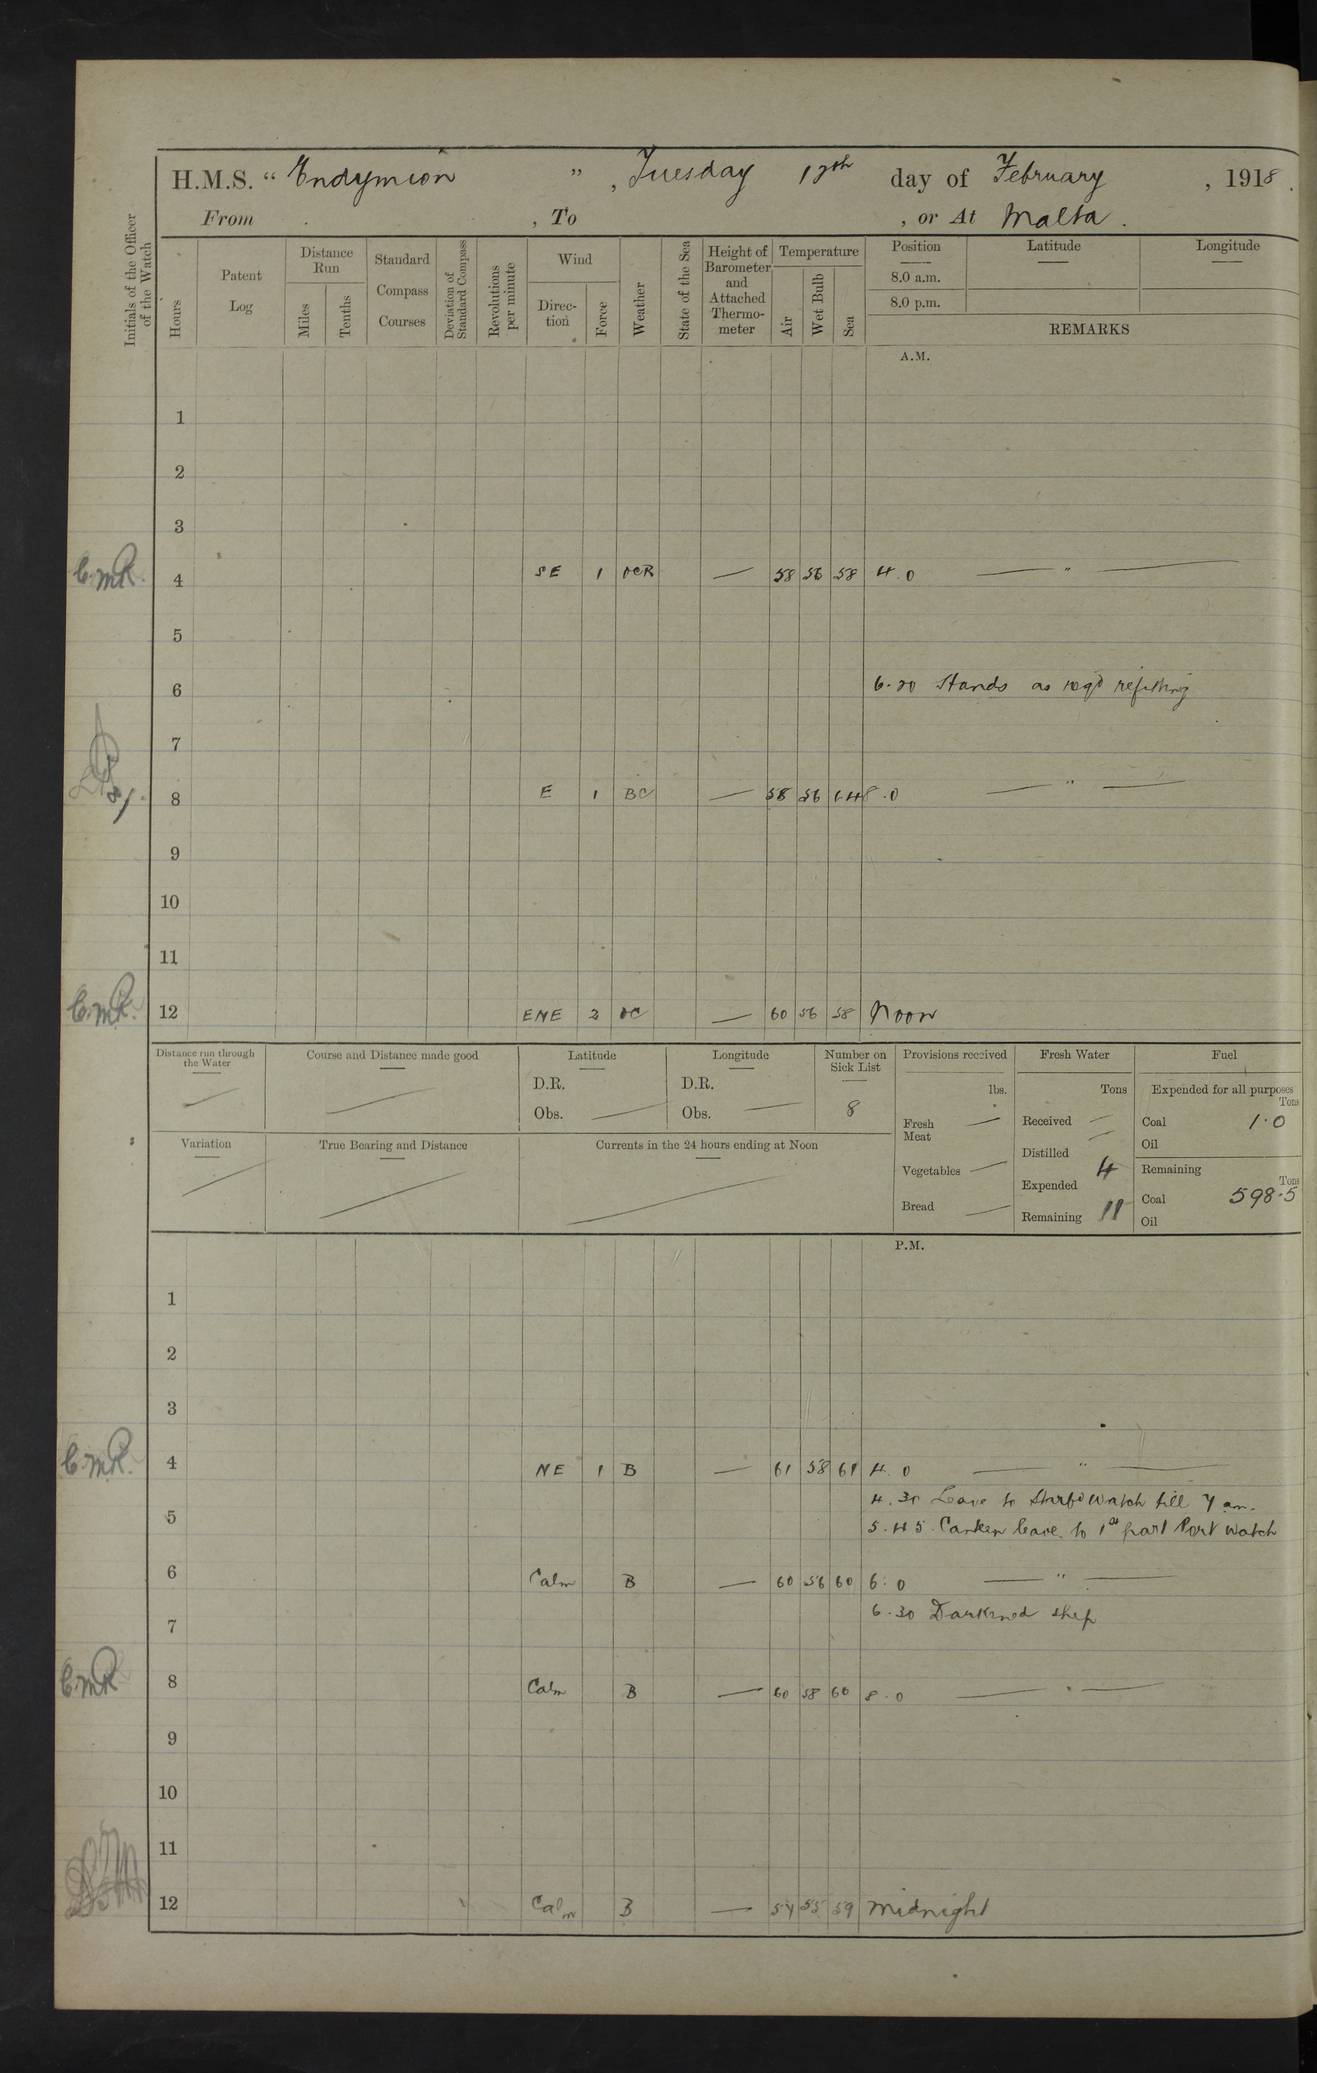 H.M.S. “ Endymion ” , Tuesday 12th day of February , 1918 .
From , To , or At Malta .
Initials of the Officer of the Watch
Hours
Patent Log
Distance Run
Miles
Tenths
Standard Compass Courses
Deviation of Standard Compass
Revolutions per minute
Wind
Direction
Force
Weather
State of the Sea
Height of Barometer and Attached Thermometer
Temperature
Air
Wet Bulb
Sea
Position
Latitude
Longitude
8.0 a.m.
8.0 p.m.
REMARKS
A.M.
1
2
3
C.M.R. 4 SE 1 OCR — 58 56 58 4.0 — " —
5
6 6.20 Hands as reqd refitting
7
8 E 1 BC — 58 56 8.0 — " —
9
10
11
C.M.R. 12 ENE 2 OC — 60 56 58 Noon
Distance run through the Water
Course and Distance made good
Latitude
D.R.
Obs. —
Longitude
D.R.
Obs. —
Number on Sick List
8
Variation
True Bearing and Distance
Currents in the 24 hours ending at Noon
Provisions received
lbs.
Fresh Meat —
Vegetables —
Bread —
Fresh Water
Tons
Received —
Distilled —
Expended 4
Remaining 11
Fuel
Expended for all purposes
Tons
Coal 1.0
Oil
Remaining
Tons
Coal 598.5
Oil
P.M.
1
2
3
C.M.R. 4 NE 1 B — 61 58 61 4.0 — " —
4.30 Leave to Starbd Watch till 7 am.
5 5.45 Canteen leave to 1st part Port Watch
6 Calm B — 60 56 60 6.0 — " —
6.30 Darkened ship
7
C.M.R. 8 Calm B — 60 58 60 8.0 — " —
9
10
11
12 Calm B — 55 59 Midnight